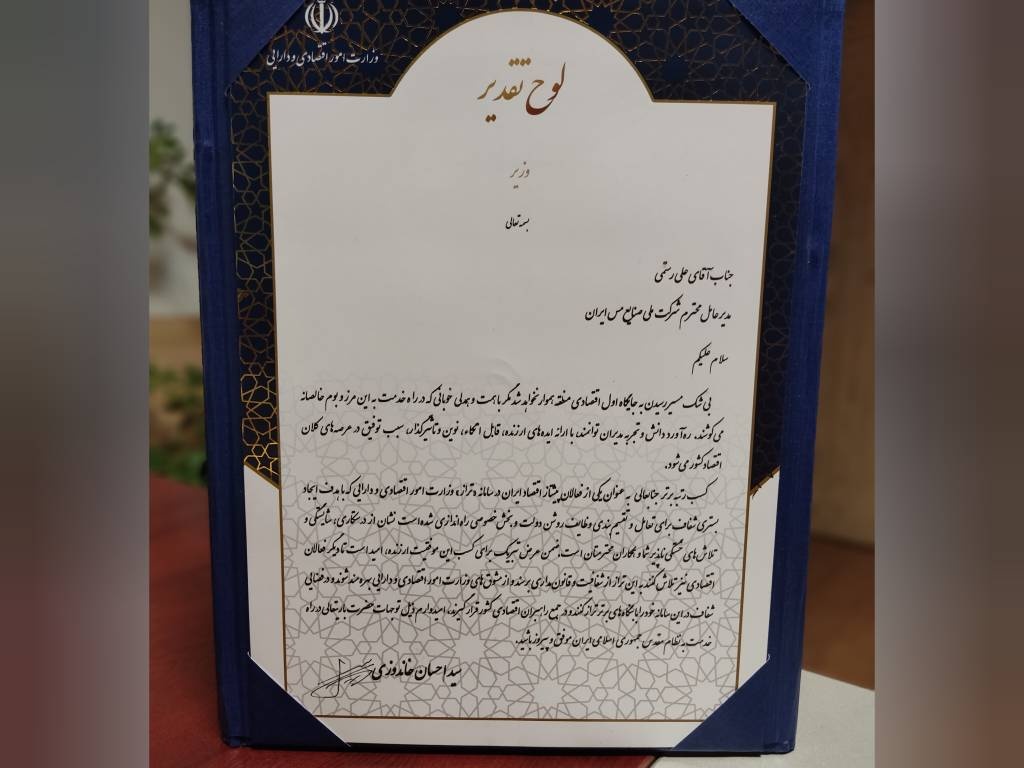 وزارت امور اقتصادی و دارایی
لوح تقدیر
وزیر
بسمه تعالی
جناب آقای علی رستمی
مدیر عامل محترم شرکت ملی صنایع مس ایران
سلام علیکم
بی شک مسیر رسیدن به جایگاه اول اقتصادی منطقه هموار نخواهد شد مگر با همت و همدلی خوبانی که در راه خدمت به این مرز و بوم خالصانه
می کوشند. ره آورد دانش و تجربه مدیران توانمند، با ارائه ایده های ارزنده، قابل اتکاء، نوین و تاثیرگذار، سبب توفیق در عرصه های کلان
اقتصاد کشور می شود.
کسب رتبه برتر جنابعالی به عنوان یکی از فعالان پیشتاز اقتصاد ایران در سامانه «تراز» وزارت امور اقتصادی و دارایی که با هدف ایجاد
بستری شفاف برای تعامل و تقسیم بندی وظایف روشن دولت و بخش خصوصی راه اندازی شده است نشان از درستکاری، شایستگی و
تلاش های خستگی ناپذیر شما و همکاران محترمتان است، ضمن عرض تبریک برای کسب این موفقیت ارزنده، امید است تا دیگر فعالان
اقتصادی نیز تلاش کنند به این تراز از شفافیت و قانون مداری برسند و از مشوق های وزارت امور اقتصادی و دارایی بهره مند شوند و در فضایی
شفاف در این سامانه خود را با بنگاه های برتر تراز کنند و در جمع راهبران اقتصادی کشور قرار گیرند، امیدوارم ذیل توجهات حضرت باریتعالی در راه
خدمت به نظام مقدس جمهوری اسلامی ایران موفق و پیروز باشید.
سید احسان خاندوزی